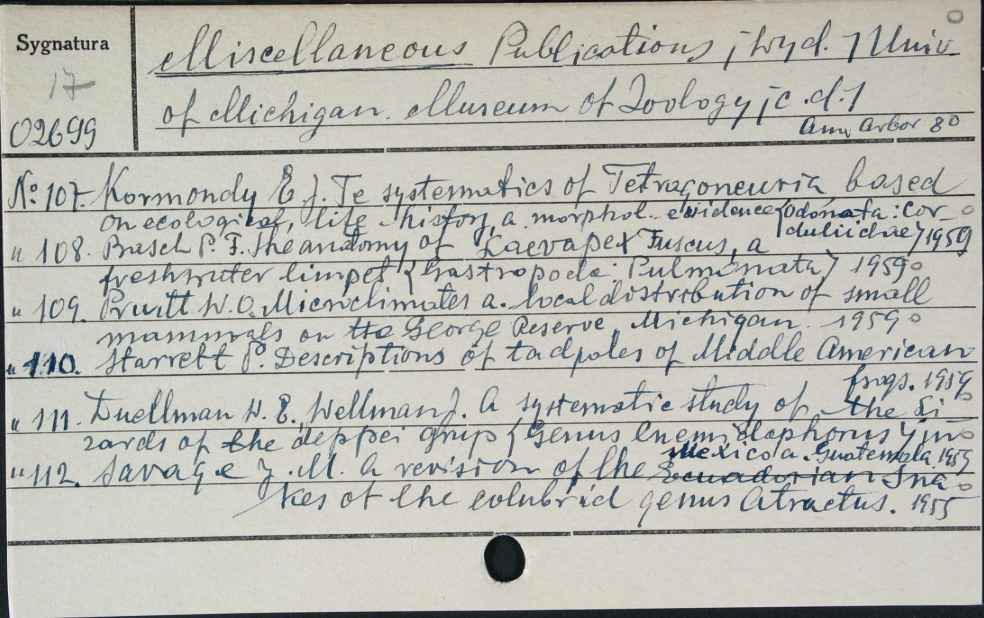 Sygnatura
17
02699
Miscellaneous Publications [wyd.] Univ
of Michigan. Museum of Zoology [c.d.]
Ann Arbor 80
No 107. Kormondy E. J. Te systematics of Tetragoneuria based
on ecological, life - history, a morphol. evidence (Odonata: Cor-
duliidae) 1959
" 108. Basch P. F. The anatomy of Laevapex Fuscus, a
freshwater limpet (Gastropoda: Pulmonata) 1959
" 109. Pruitt W. O. Microclimates a. local distribution of small
mammals on the George Reserve, Michigan. 1959
" 110. Starrett P. Descriptions of tadpoles of Middle American
frogs. 1959
" 111. Duellman W. E., Wellman J. A systematic study of the Li-
zards of the deppei grup (Genus Cnemidophorus) in
Mexico a. Guatemala. 1959
" 112. Savage J. M. A revision of the Ecuadorian Sna-
kes of the colubrid genus Atractus. 1955